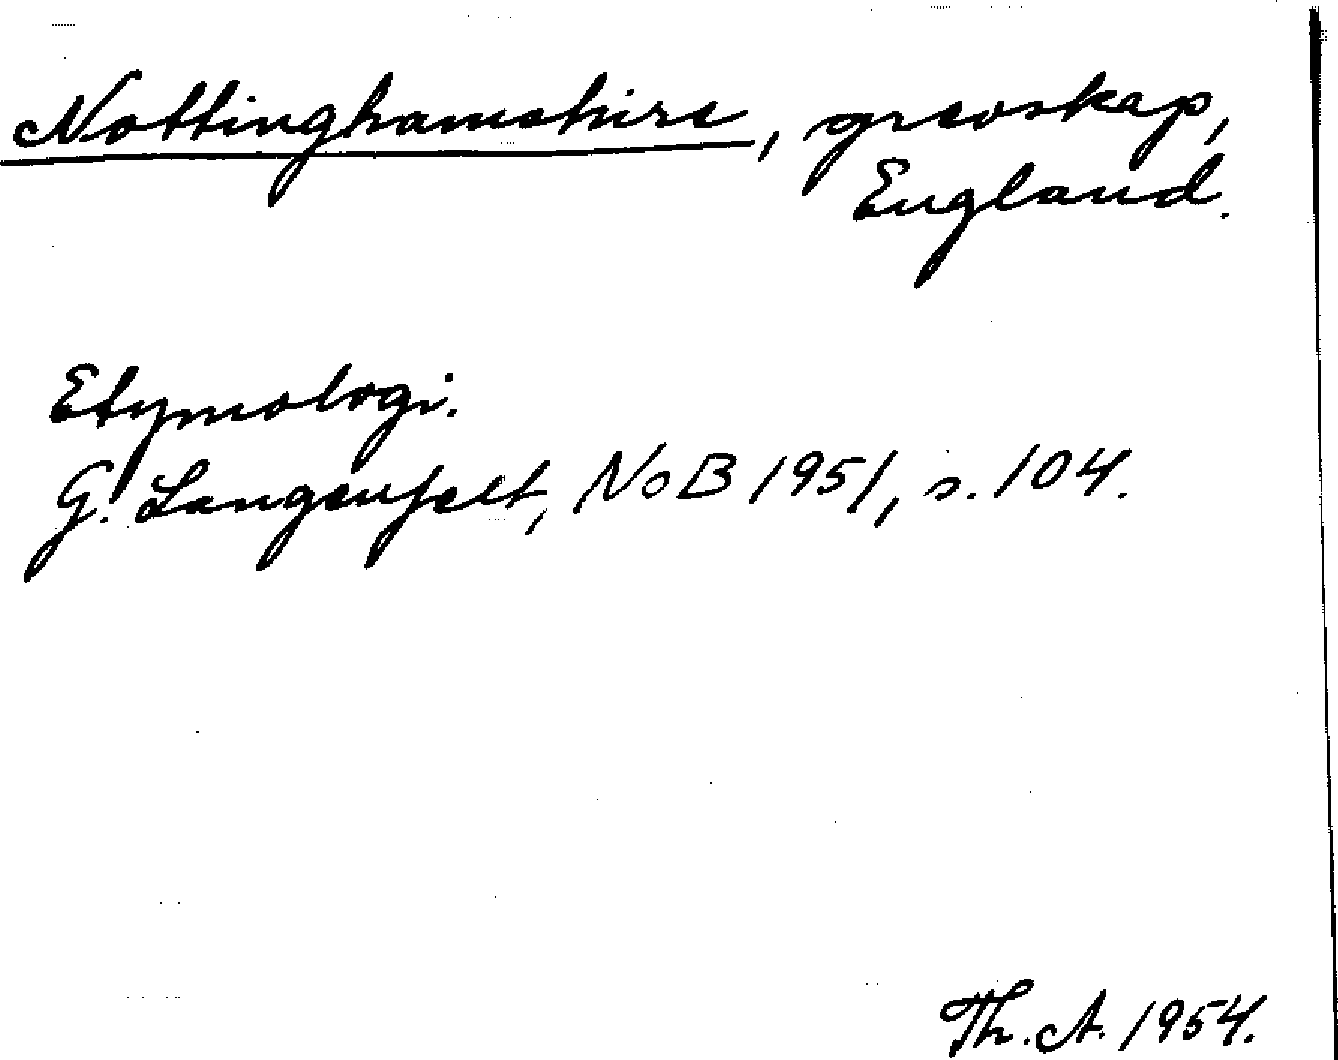 Nottinghamshire, grevskap,
England.
Etymologi.
G. Langenfelt, NoB 1951, s. 104.
Th. A. 1954.